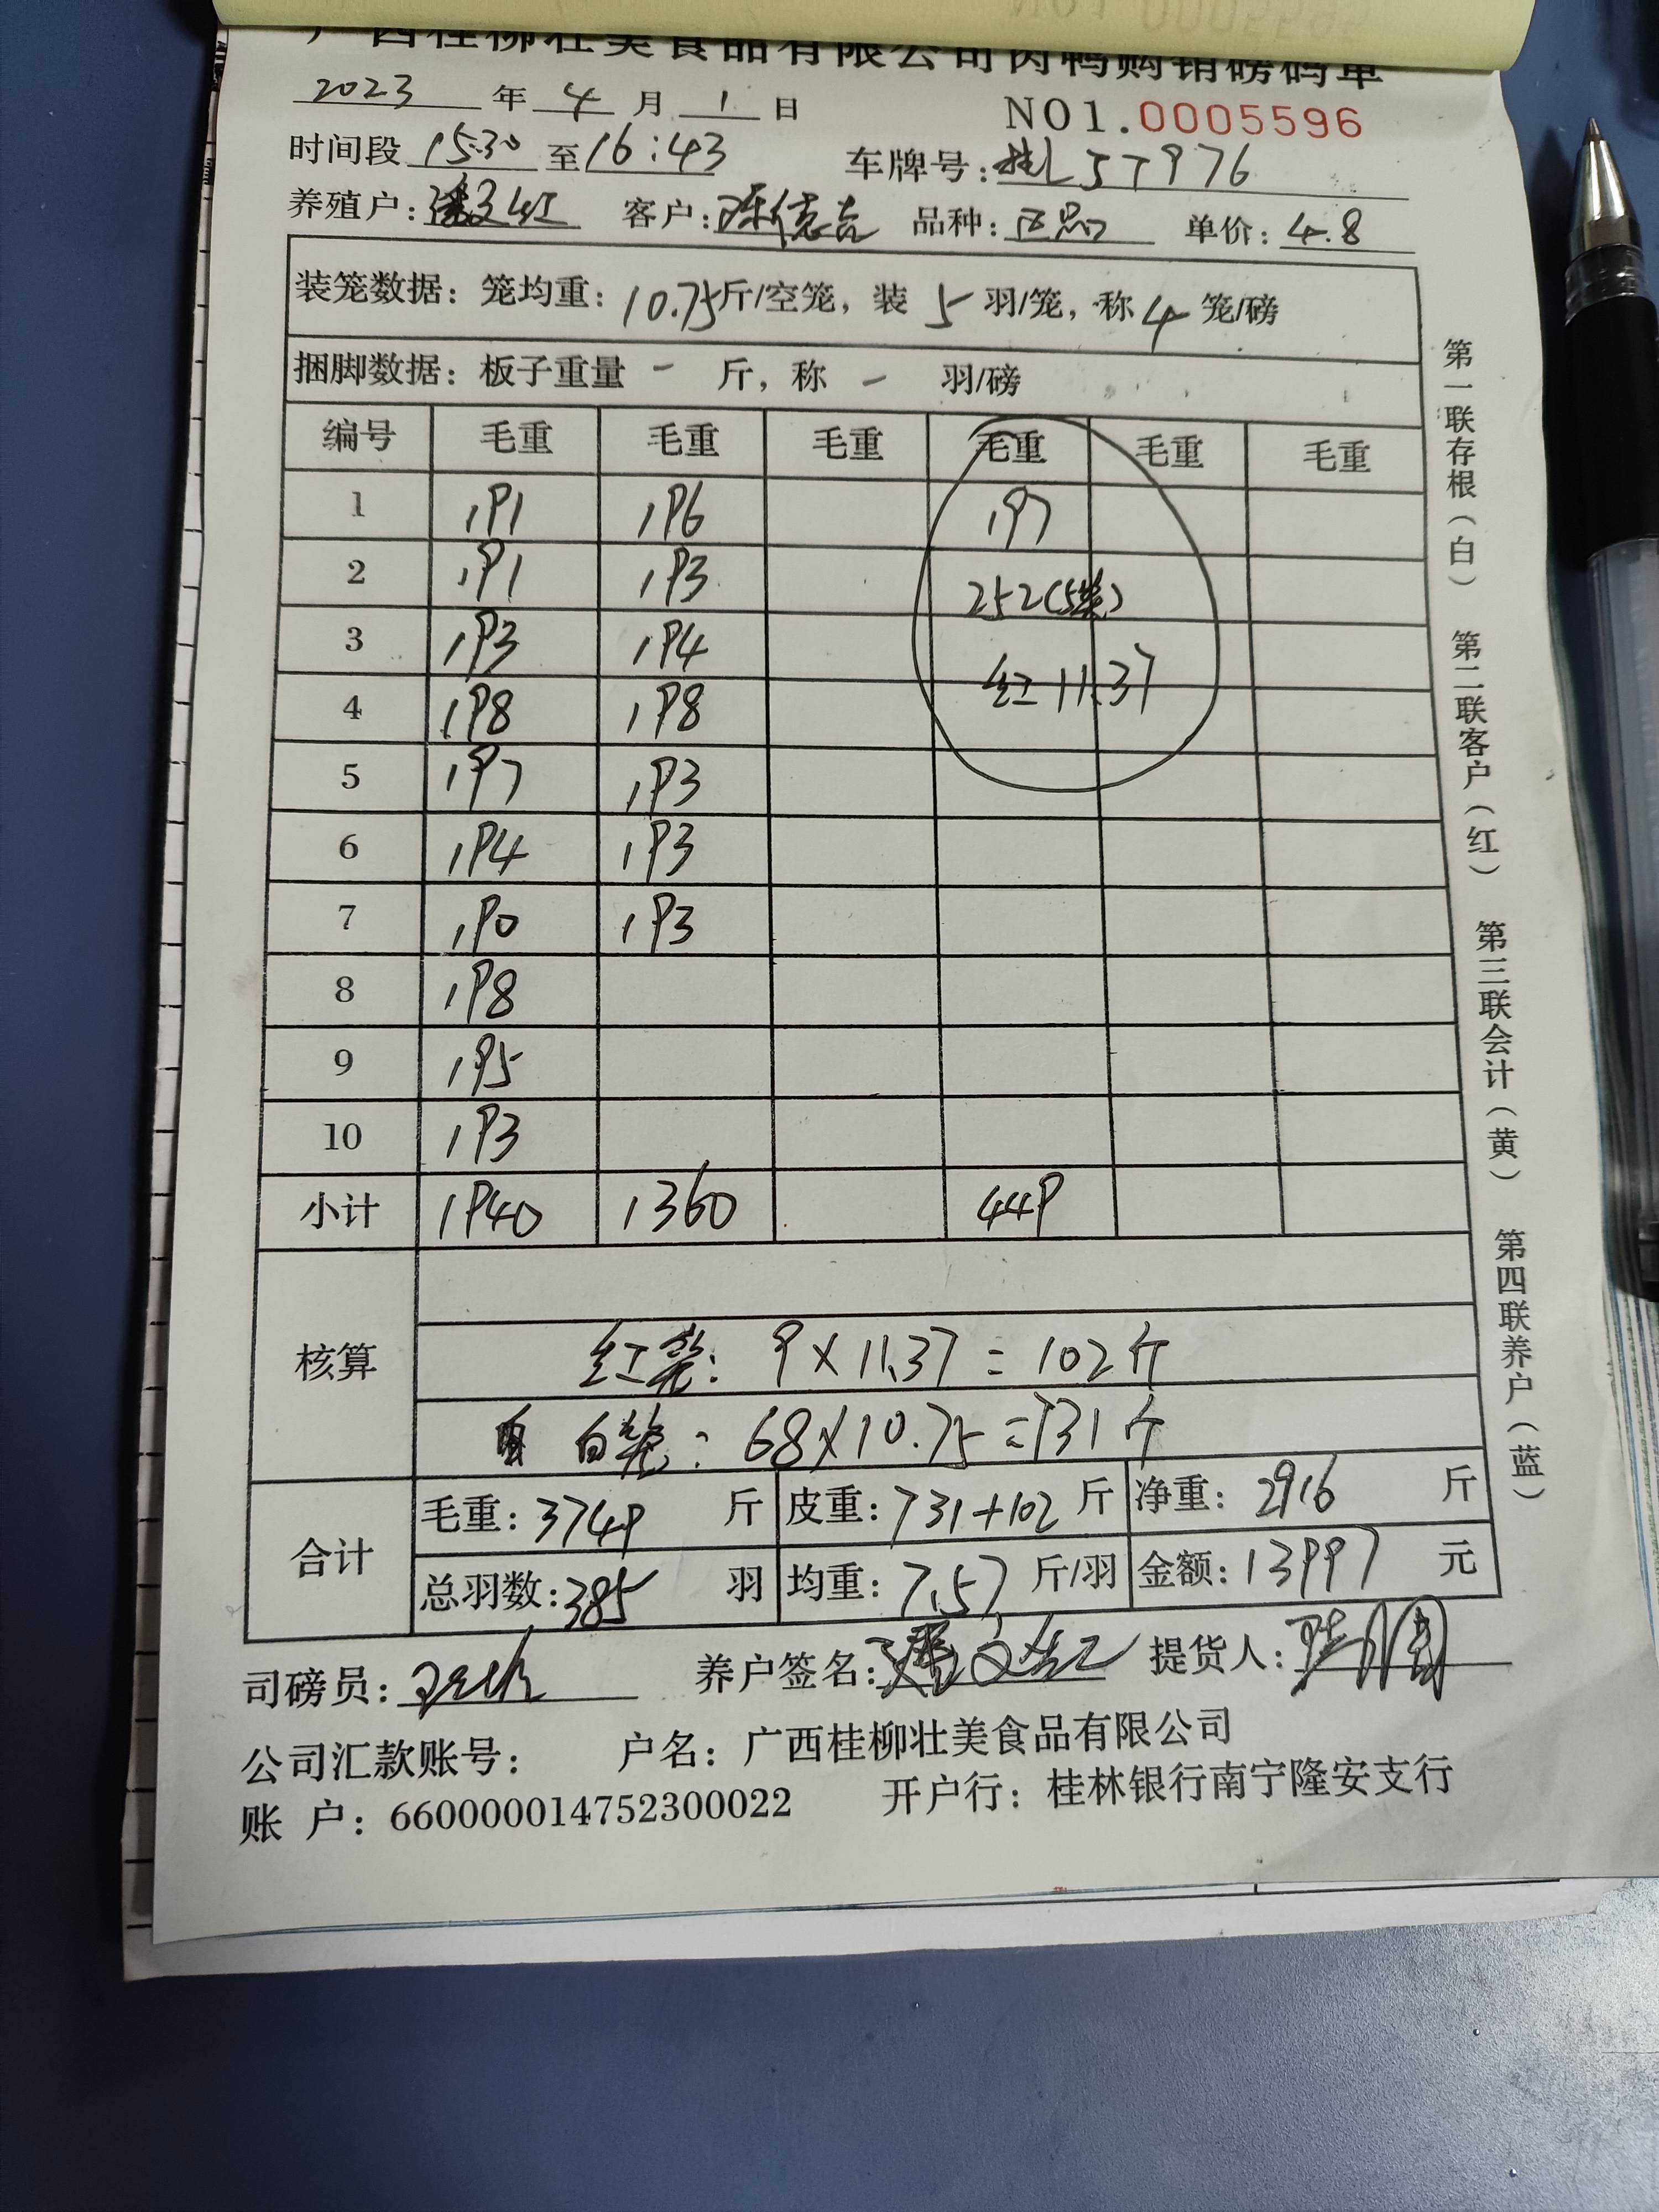 广西桂柳壮美食品有限公司肉鸭购销磅码单
2023 年 4 月 1 日 NO1.0005596
时间段 15:30 至 16:43 车牌号: 桂L5T976
养殖户: 潘文红 客户: 陈信吉 品种: 正品 单价: 4.8
装笼数据: 笼均重: 10.75 斤/空笼, 装 5 羽/笼, 称 4 笼/磅
捆脚数据: 板子重量 - 斤, 称 - 羽/磅
编号 毛重 毛重 毛重 毛重 毛重 毛重
1 191 196 197
2 191 193 252(5笼)
3 193 194 红 11.37
4 198 198
5 197 193
6 194 193
7 190 193
8 198
9 195
10 193
小计 1940 1360 449
核算
红笼: 9×11.37=102斤
白笼: 68×10.75=731斤
合计
毛重: 3749 斤 皮重: 731+102 斤 净重: 2916 斤
总羽数: 385 羽 均重: 7.57 斤/羽 金额: 13997 元
司磅员: 养户签名: 潘文红 提货人:
公司汇款账号: 户名: 广西桂柳壮美食品有限公司
账 户: 660000014752300022 开户行: 桂林银行南宁隆安支行
第一联存根(白) 第二联客户(红) 第三联会计(黄) 第四联养户(蓝)